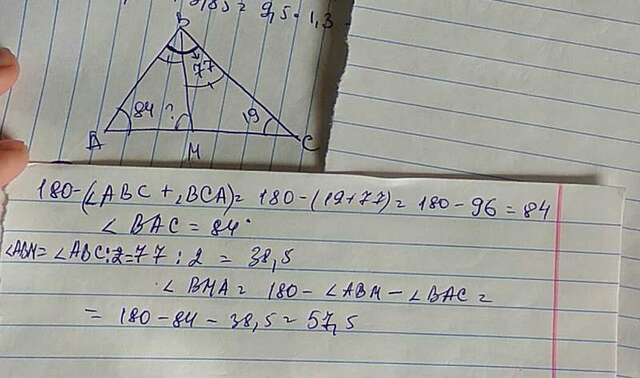 2,5 · 1,3
B
77
84 ?
19
A
M
C
180-(∠ABC+∠BCA)= 180-(19+77)= 180-96=84
∠BAC=84°
∠ABM=∠ABC:2=77:2=38,5
∠BMA= 180-∠ABM-∠BAC=
=180-84-38,5=57,5